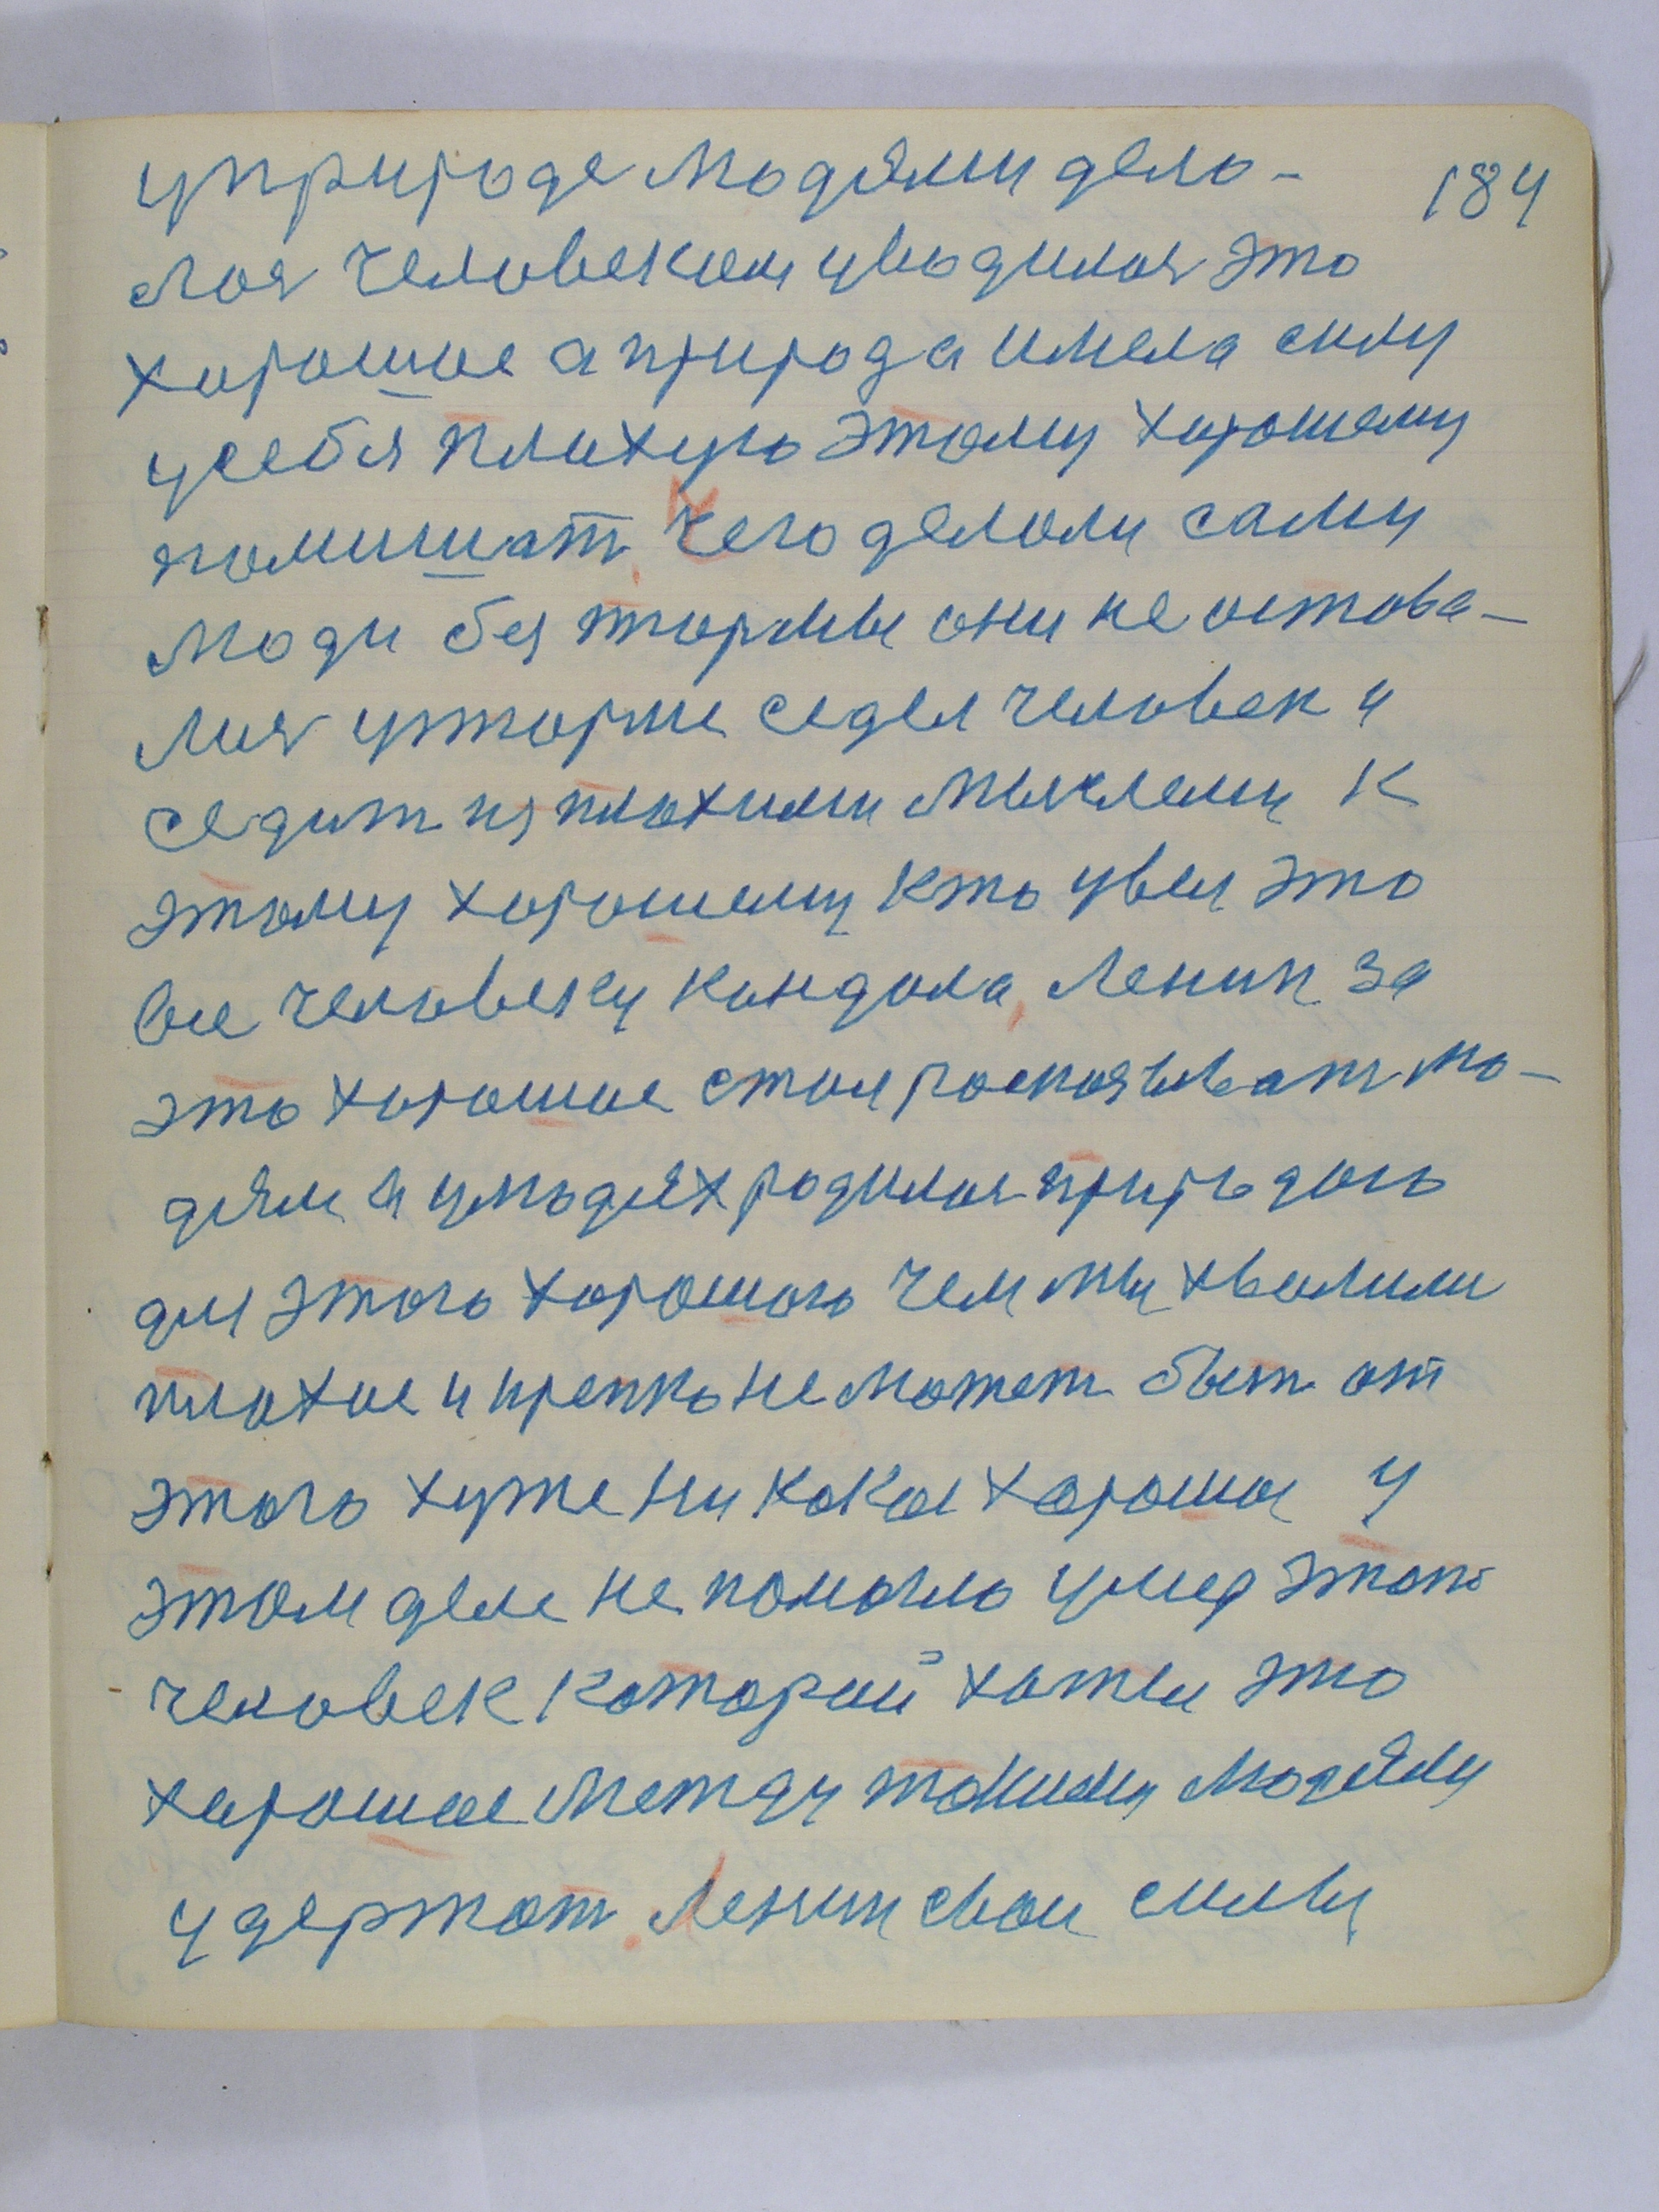 уприроде людями дело- 184
лося человеком уводился это
хорошое а природа имела силу
усебя плохую этому хорошему
помишат. Чего делоли сами
люди без тюрмы они не остова-
лися утюрме седел человек и
седит из плохими мыслями к
этому хорошему кто увел это
все человеку кандола, Ленин за
это хорошое стал россказыват лю-
дям а улюдях родился природою
для этого хорошого чем мы хволили
плохое и крепко не может быт от
этого хуже ни какое хорошое у
этом деле не помогло умер этот
человек которой хотел это
хорошое между такими людями
удержат. Ленин свои силы